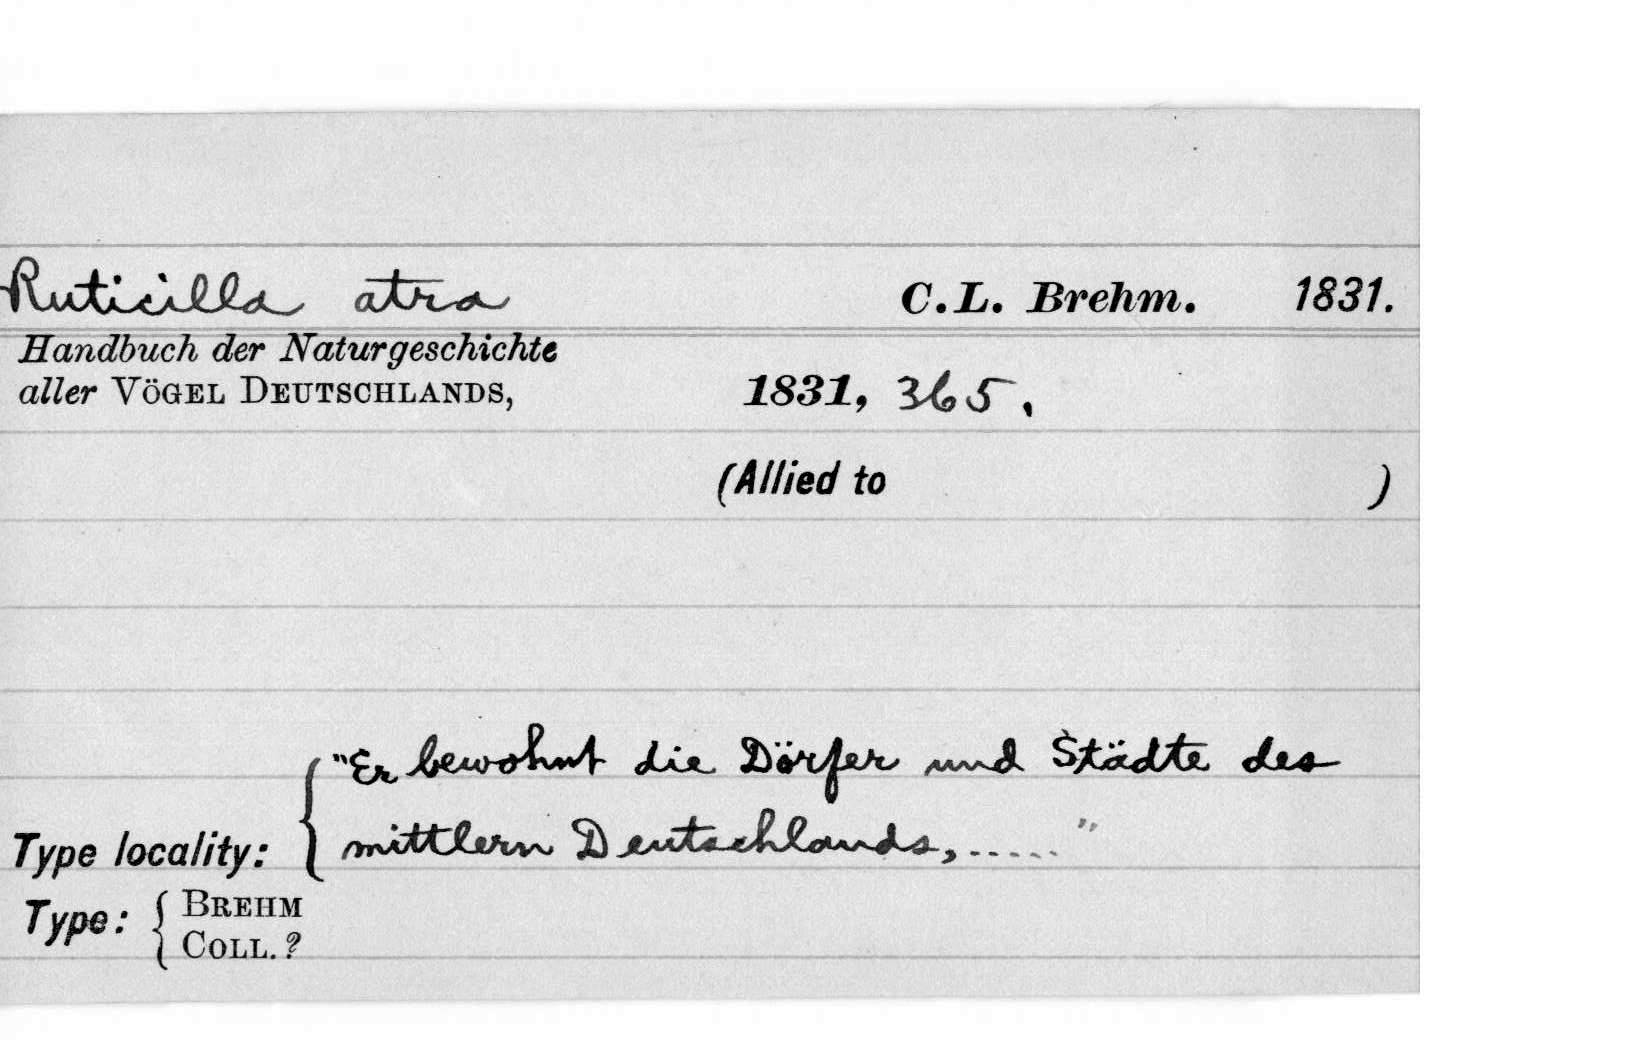 Ruticilla atra C.L. Brehm. 1831.
Handbuch der Naturgeschichte
aller VÖGEL DEUTSCHLANDS, 1831, 365.
(Allied to )
"Er bewohnt die Dörfer und Städte des
Type locality: { mittlern Deutschlands,....."
Type: { BREHM
COLL.?